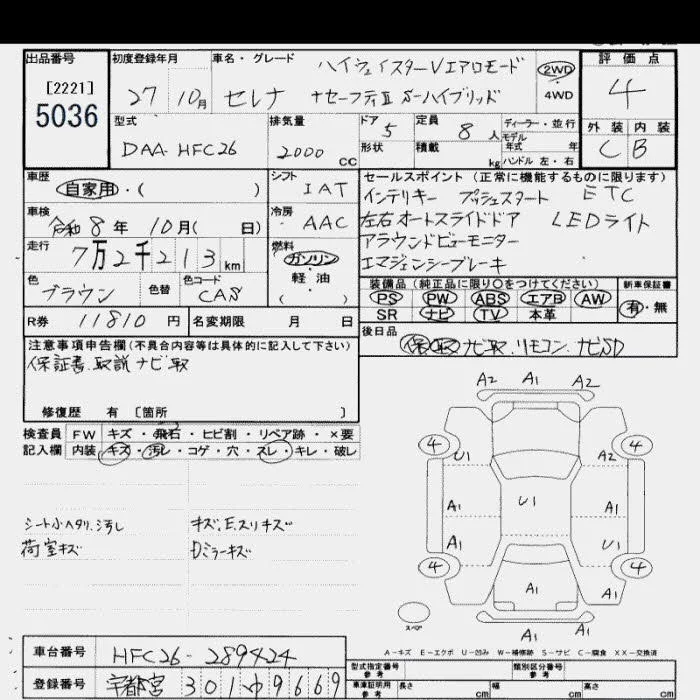 出品番号 初度登録年月 車名・グレード ハイウェイスターVエアロモード 2WD 評価点
[2221] 27 10月 セレナ +セーフティⅡ S-ハイブリッド 4WD 4
5036 型式 排気量 ドア 5 定員 8人 ディーラー・並行 外装 内装
DAA-HFC26 2000 cc 形状 積載 kg モデル年式 年式 ハンドル 左・右 C B
車歴 シフト セールスポイント(正常に機能するものに限ります)
自家用・( ) IAT インテリキー プッシュスタート ETC
車検 令和8年 10月( 日) 冷房 AAC 左右オートスライドドア LEDライト
走行 7万2千213km 燃料 ガソリン アラウンドビューモニター
軽・油 エマジェンシーブレーキ
色 色替 色コード ( ) 装備品(純正品に限り○をつけてください) 新車保証書
ブラウン CAS PS PW ABS エアB AW 有・無
R券 11810円 名変期限 月 日 SR ナビ TV 本革
注意事項申告欄(不具合内容等は具体的に記入して下さい) 後日品
保証書.取説ナビ取 保 取 ナビ取.リモコン.ナビSD
修復歴 有 [箇所 ]
検査員 FW キズ・飛石・ヒビ割・リペア跡・×要
記入欄 内装 キズ・汚レ・コゲ・穴・スレ・キレ・破レ
A2 A1 A2
4 4
U1 A2
A1 U1 A1
A1 U1
4 4
A1 A1
A1 A1
シート小ヘタリ.汚し キズ.E.スリキズ
荷室キズ Dミラーキズ
スペア
A-キズ E-エクボ U-凹み W-補修跡 S-サビ C-腐食 XX-交換済
車台番号 HFC26-289424 型式指定番号 参考 類別区分番号 参考
登録番号 宇都宮 301 9669 車庫証明用 参考 長さ cm 幅 cm 高さ cm